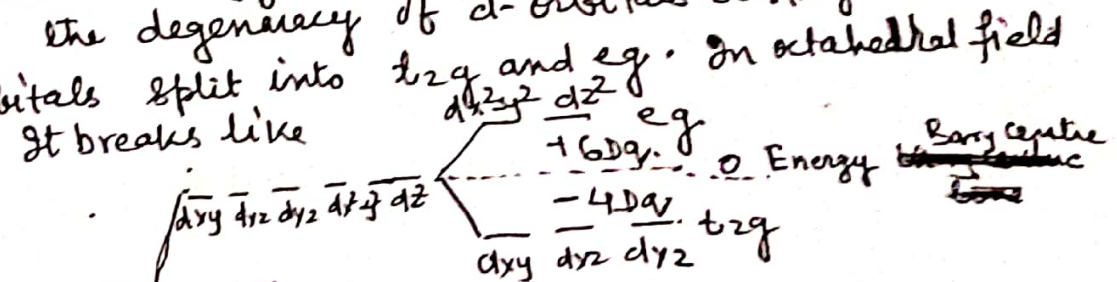 the degeneracy of d-
bitals split into t2g and eg. In octahedral field
It breaks like
dx²y² dz² eg
+6Dq.
0 Energy Barry centre
dxy dyz dyz dx²-y² dz
-4Dq
t2g
dxy dyz dyz